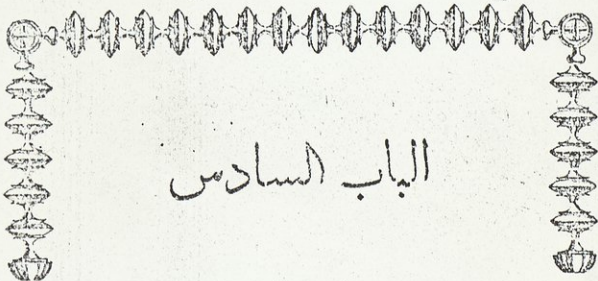 الباب السادس